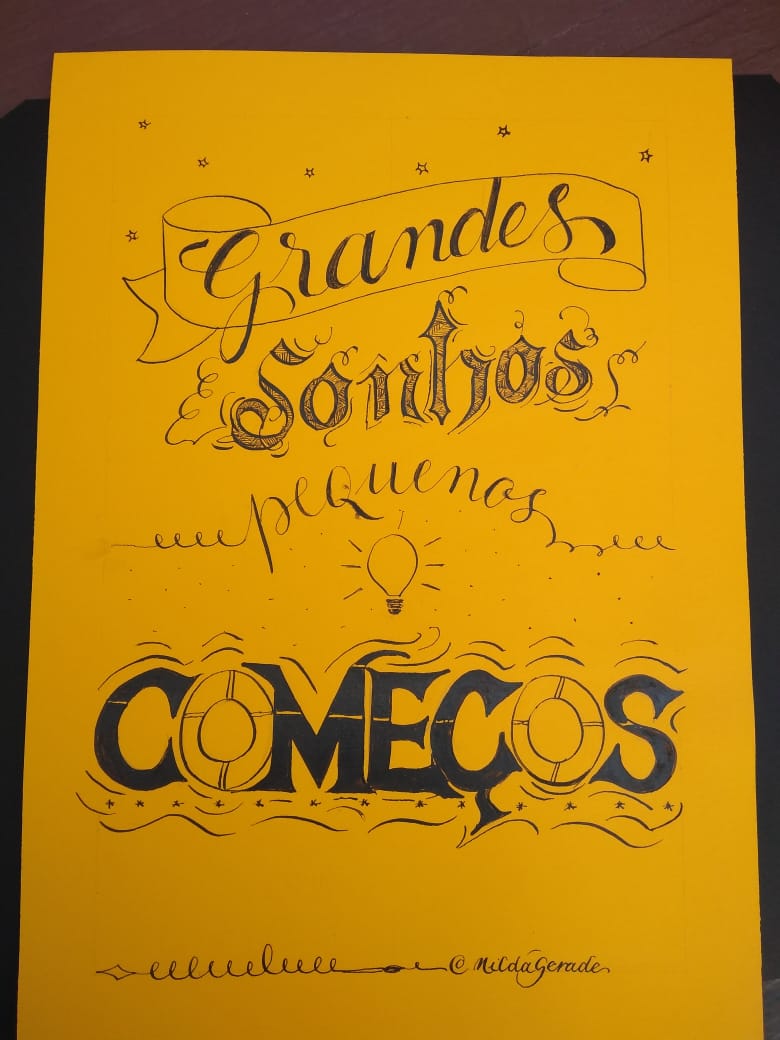 Grandes
Sonhos
pequenos
COMEÇOS
@ NildaGerade